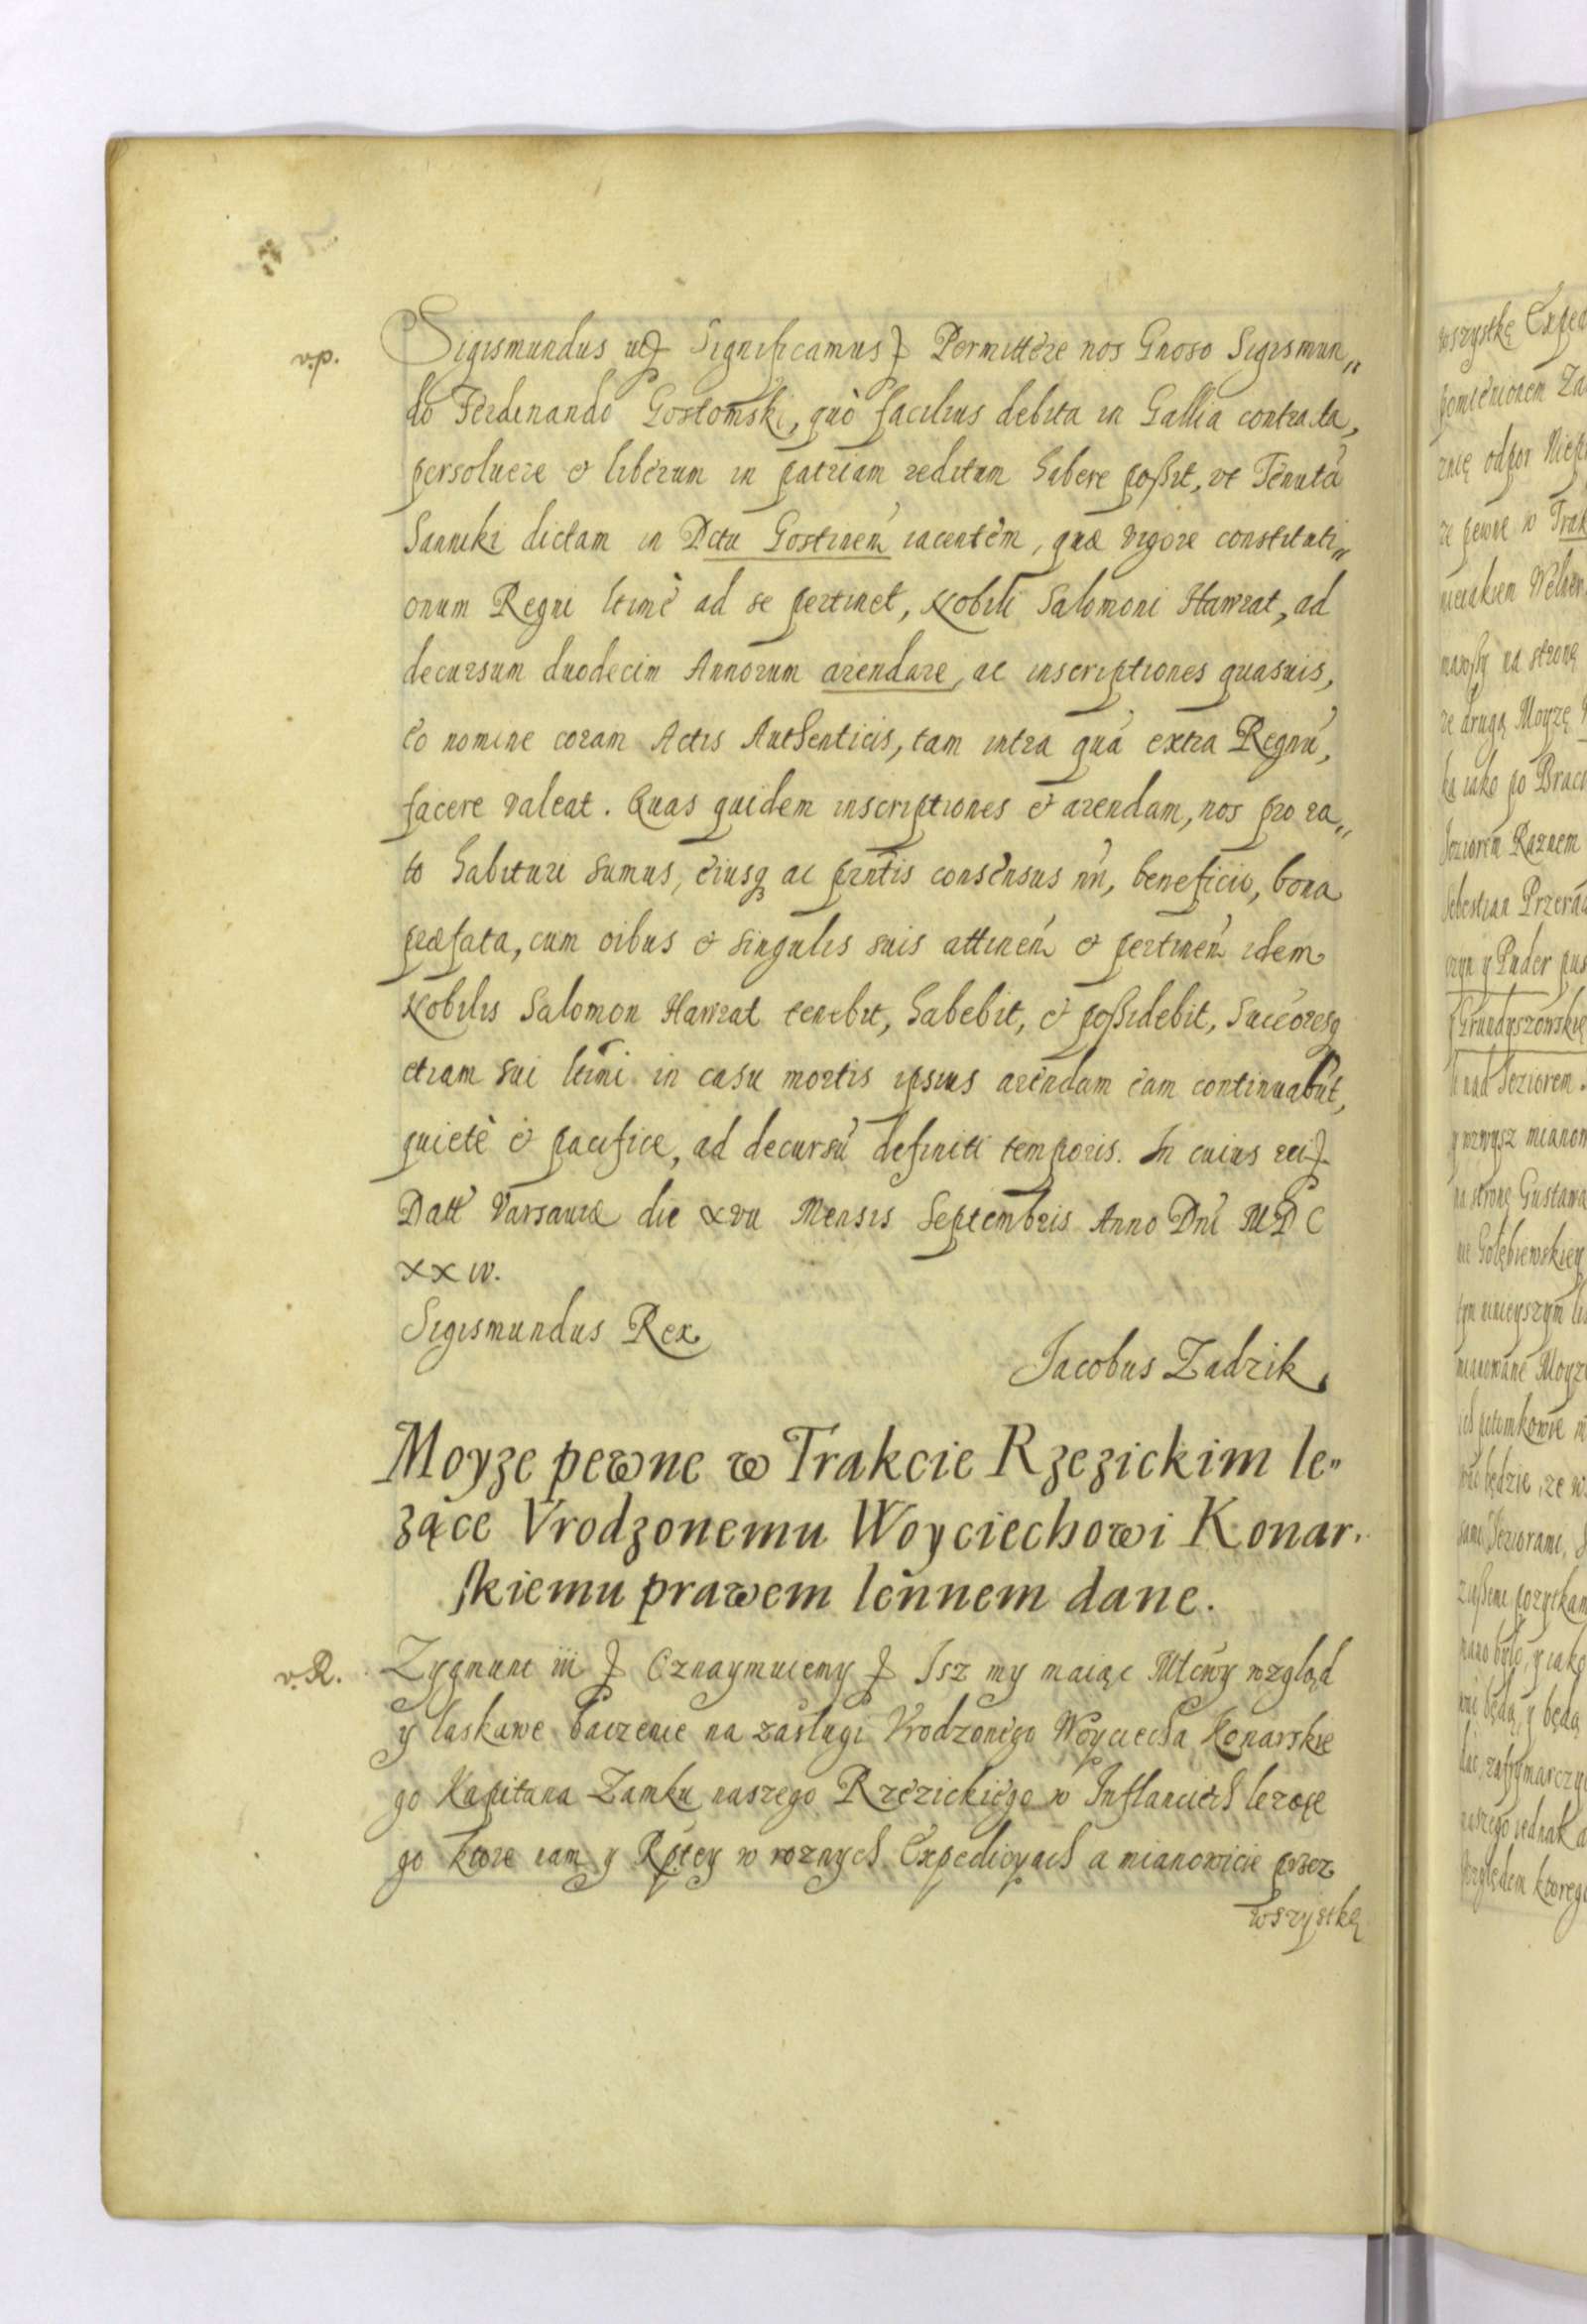 v.p.
Sigismundus etc Significamus etc Permittere nos Gnoso Sigismun„
do Ferdinando Gostomski, quò facilius debita in Gallia contracta,
persoluere & liberum in patriam reditum habere poßit, vt Tenutā
Sanniki dictam in Dctu Gostinen̄ iacentem, quæ vigore constituti„
onum Regni ltimè ad se pertinet, Nobili Salomoni Hawrat, ad
decursum duodecim Annorum arendare, ac inscriptiones quasuis,
eo nomine coram Actis Authenticis, tam intra quā extra Regnū,
facere valeat. Quas quidem inscriptiones & arendam, nos pro ra„
to habituri sumus, eiusq ac pntis consensus nri, beneficio, bona
præfata, cum oibus & singulis suis attinen̄ & pertinen̄ idem
Nobilis Salomon Hawrat tenebit, habebit, & poßidebit, Succoresq
etiam sui ltimi in casu mortis ipsius arendam eam continuabūt,
quietè & pacifice, ad decursū definiti temporis. In cuius rei etc
Datt Varsauiæ die xvii Mensis Septembris Anno Dni MDC
xx iv.
Sigismundus Rex
Jacobus Zadzik
Moyze pewne w Trakcie Rzezickim le„
zące Vrodzonemu Woyciechowi Konar„
skiemu prawem lennem dane.
v.R.
Zygmunt iii etc Oznaymuiemy etc Isz my maiąc Młćiwy wzgląd
y łaskawe baczenie na zasługi Vrodzonego Woyciecha Konarskie
go Kapitana Zamku naszego Rzezickiego w Inflanciech lezące
go ktore nam y Rptey w roznych Expedicyach a mianowicie przez
wszystkę
wszystkę Exped
pomienionem Za
znię odpor Niep
ze pewne w Trak
ze drugą Moyzę
ka iako po Braci
Jeziorem Raznem
Sebestian Przera
szyn y Puder pus
y Grundyszowskię
nad Jeziorem.
y wzwysz mianow
na stronę Gustawa
nie Gołębiewskiey
tym ninieyszym lis
mianowane Moyz
ich potomkowie
będzie, ze w
Jeziorami,
pozytkam
nano było, y iako
będą, y będą
naszego iednak
względem ktorego